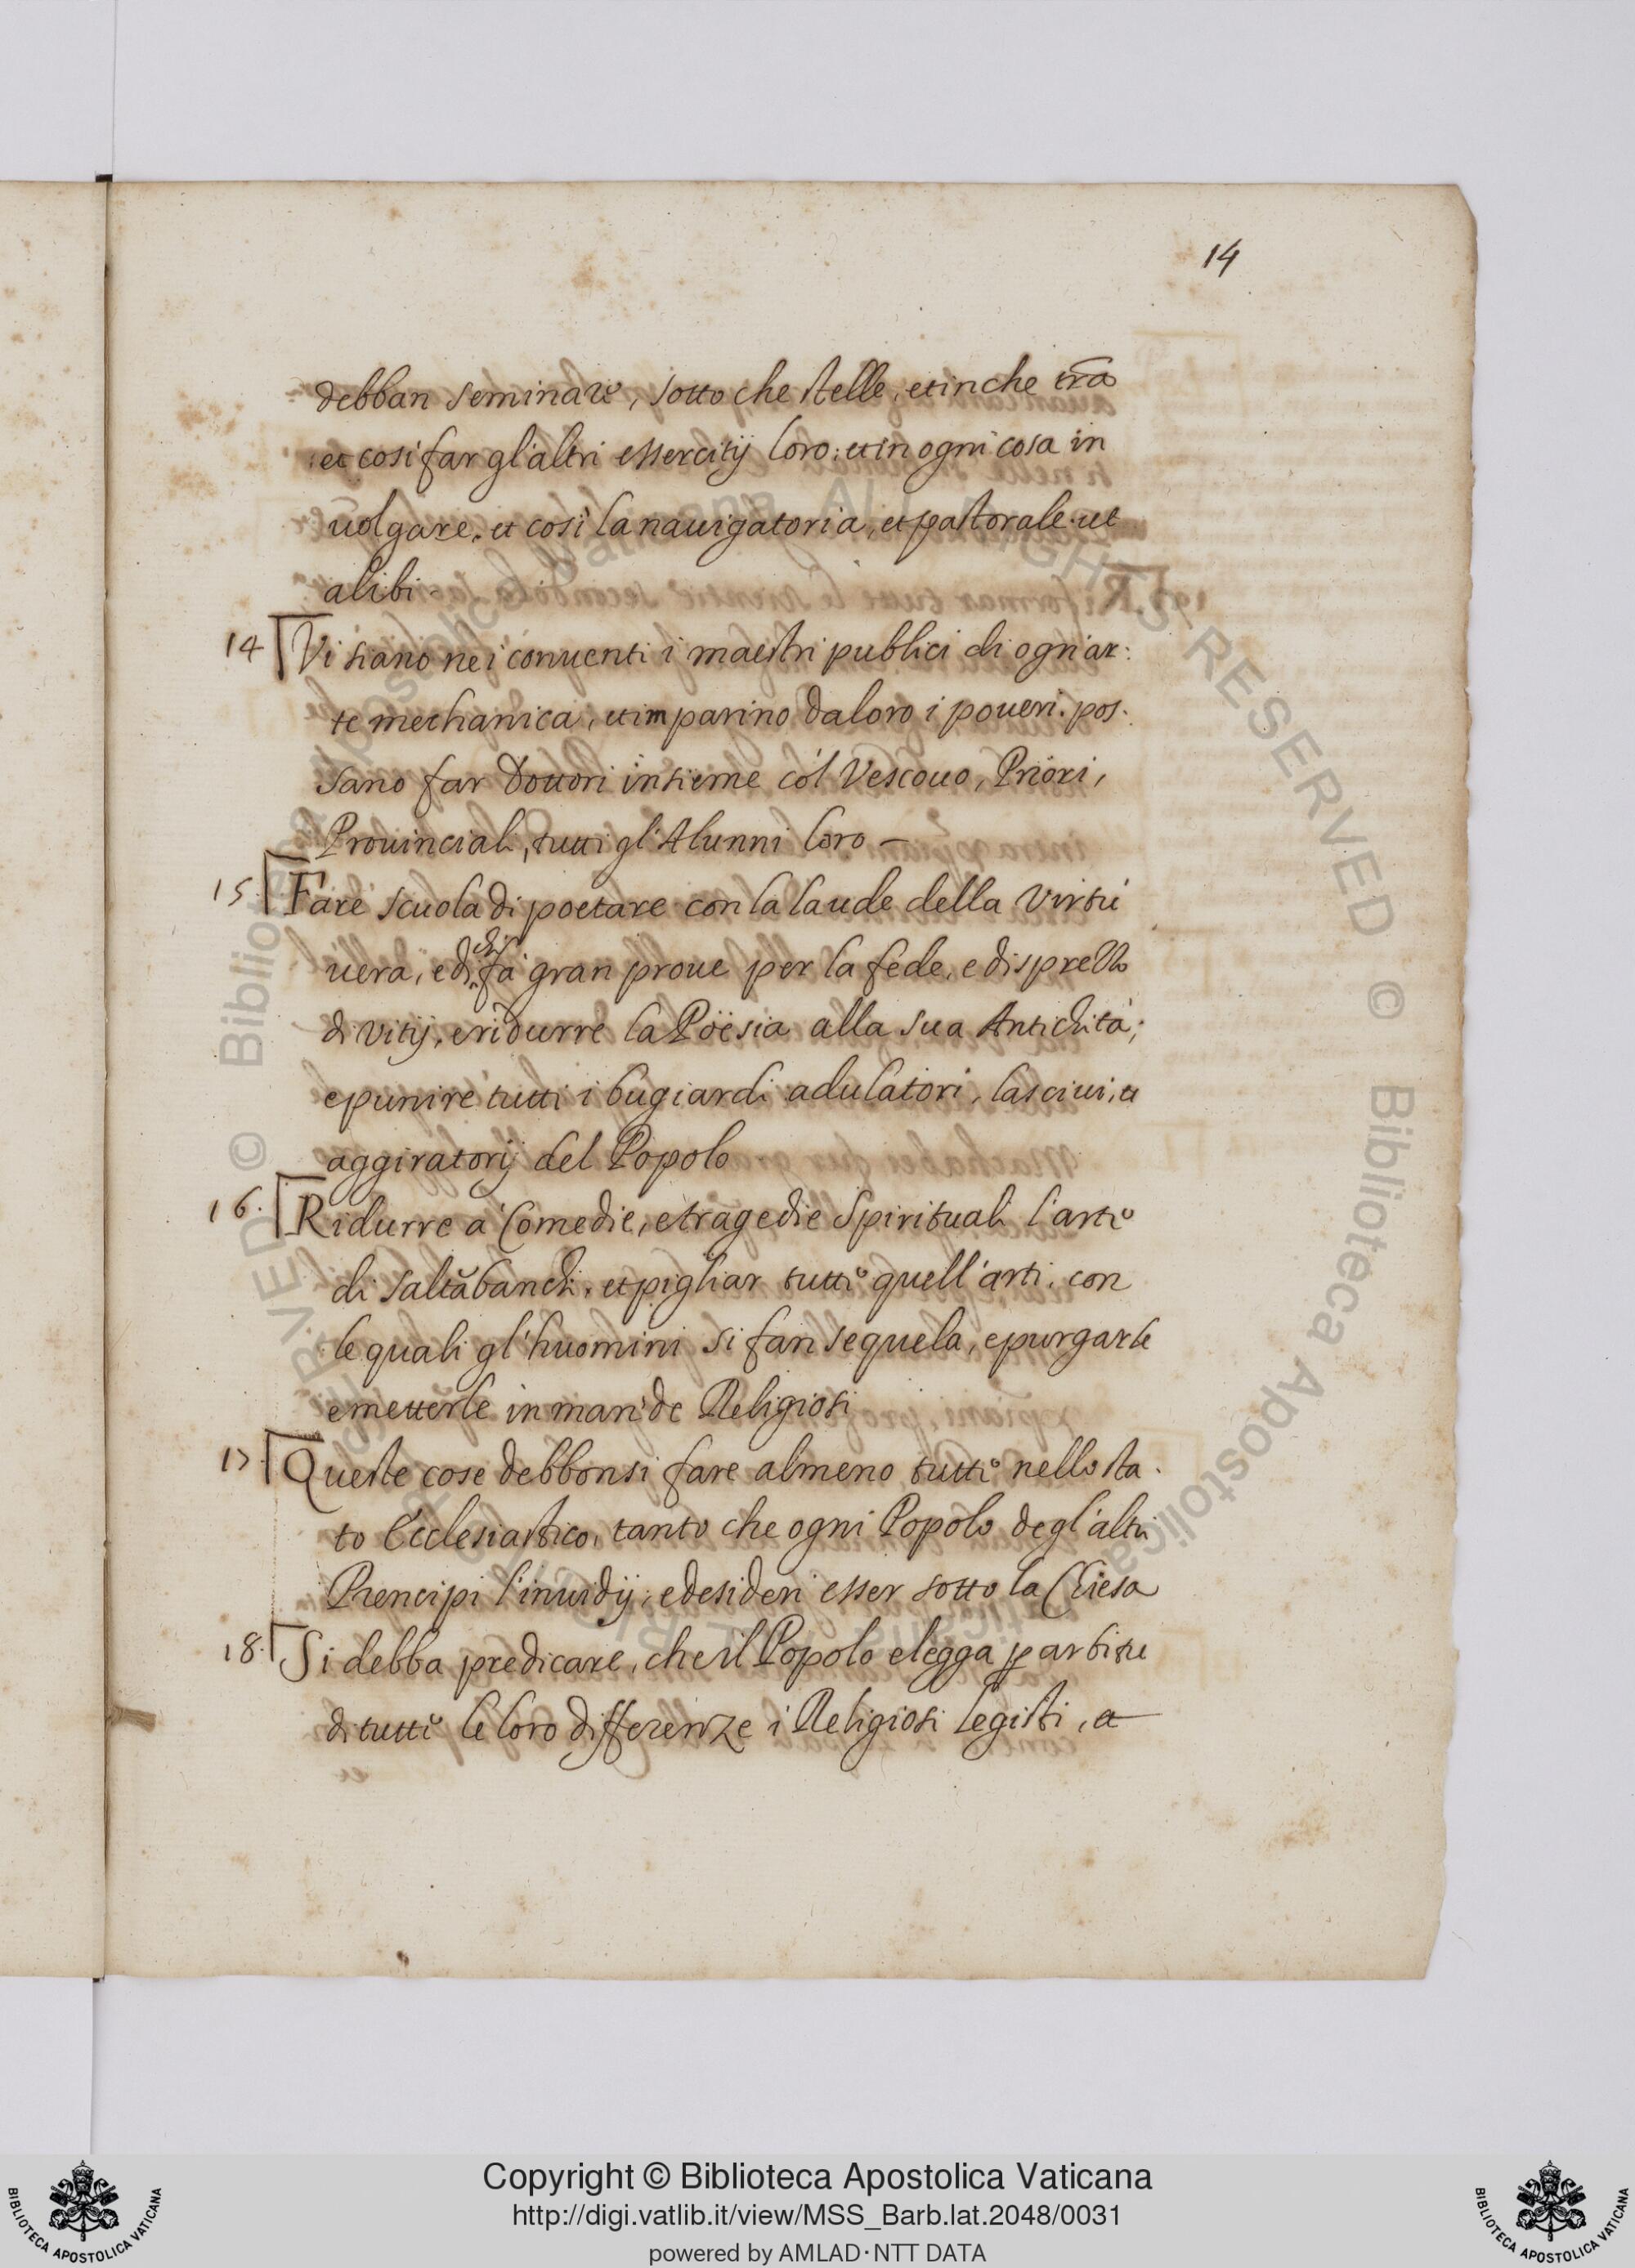 14
debban seminare, sotto che stelle, et in che tr̃a
et cosi far gl'altri essercitij loro: et in ogni cosa in
uolgare. et cosi la nauigatoria, et pastorale. ut
alibi-
14 Vi siano ne i conuenti i maestri publici di ogn'ar:
te mechanica, et imparino da loro i poueri. pos.
sano far Dottori insieme col Vescouo, Priori,
Prouinciali, tutti gl'Alunni loro -
15. Fare scuola di poetare con la laude della Virtù
uera, e di chi fà gran proue per la fede, e disprezzo
di vitij, e ridurre la Pöesia alla sua Antichità;
e punire tutti i bugiardi adulatori, lasciui, et
aggiratorij del Popolo
16. Ridurre à Comedie, e tragedie Spirituali l'arte
di saltăbanchi, et pigliar tutte quell'arti, con
le quali gl'huomini si fan sequela, e purgarle
e metterle in man de Religiosi
17. Queste cose debbonsi fare almeno tutte nello sta.
to Ecclesiastico, tanto che ogni Popolo degl'altri
Prencipi l'inuidij, e desideri esser sotto la Chiesa
18. Si debba predicare, che il Popolo elegga ꝑ arbitri
di tutte le loro differenze i Religiosi legisti, et
© Biblioteca Apostolica Vaticana ALL RIGHTS RESERVED © Biblioteca Apostolica Vaticana ALL RIGHTS RESERVED
BIBLIOTECA APOSTOLICA VATICANA
Copyright © Biblioteca Apostolica Vaticana
http://digi.vatlib.it/view/MSS_Barb.lat.2048/0031
powered by AMLAD·NTT DATA
BIBLIOTECA APOSTOLICA VATICANA